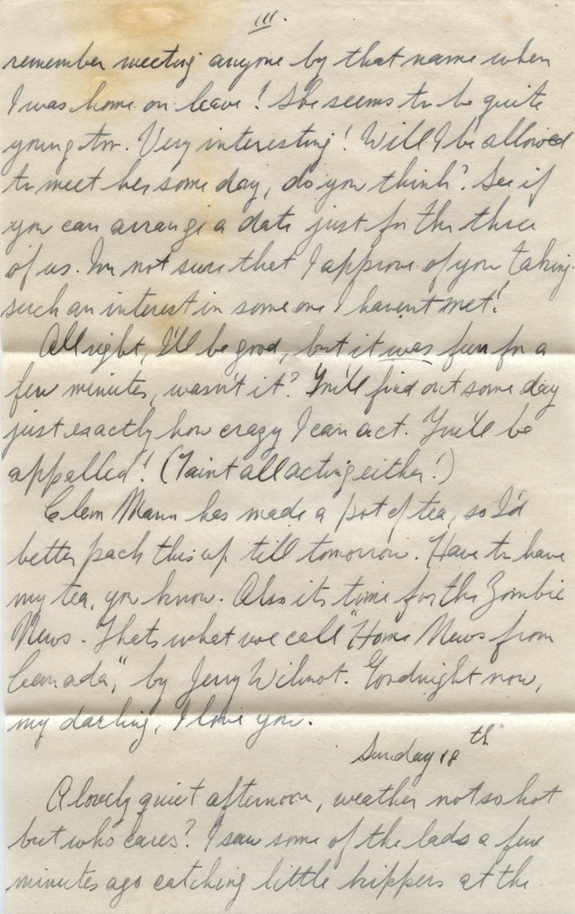 III.
remember meeting anyone by that name when
I was home on leave! She seems to be quite
young too. Very interesting! Will I be allowed
to meet her some day, do you think? See if
you can arrange a date just for the three
of us. I'm not sure that I approve of you taking
such an interest in some one I havent met!
All right, I'll be good, but it was fun for a
few minutes, wasn't it? You'll find out some day
just exactly how crazy I can act. You'll be
appalled! (Taint all acting either!)
Clem Mann has made a pot of tea, so I'd
better pack this up till tomorrow. Have to have
my tea, you know. Also its time for the Zombie
News. Thats what we call "Home News from
Canada", by Jerry Wilmot. Goodnight now,
my darling, I love you.
Sunday 18th
A lovely quiet afternoon, weather not so hot
but who cares? I saw some of the lads a few
minutes ago catching little kippers at the